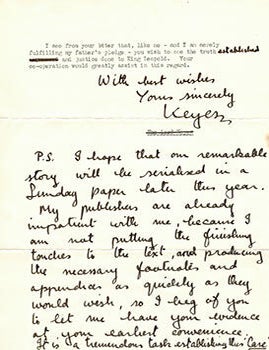 I see from your letter that, like me - and I am merely
fulfilling my father's pledge - you wish to see the truth established
and justice done to King Leopold. Your
co-operation would greatly assist in this regard.
With best wishes
Yours sincerely
Keyes
P.S. I hope that our remarkable
story will be serialised in a
Sunday paper later this year.
My publishers are already
impatient with me, because I
am not putting the finishing
touches to the text, and producing
the necessary footnotes and
appendices as quickly as they
would wish, so I beg of you
to let me have your evidence
at your earliest convenience.
It is a tremendous task establishing this Case